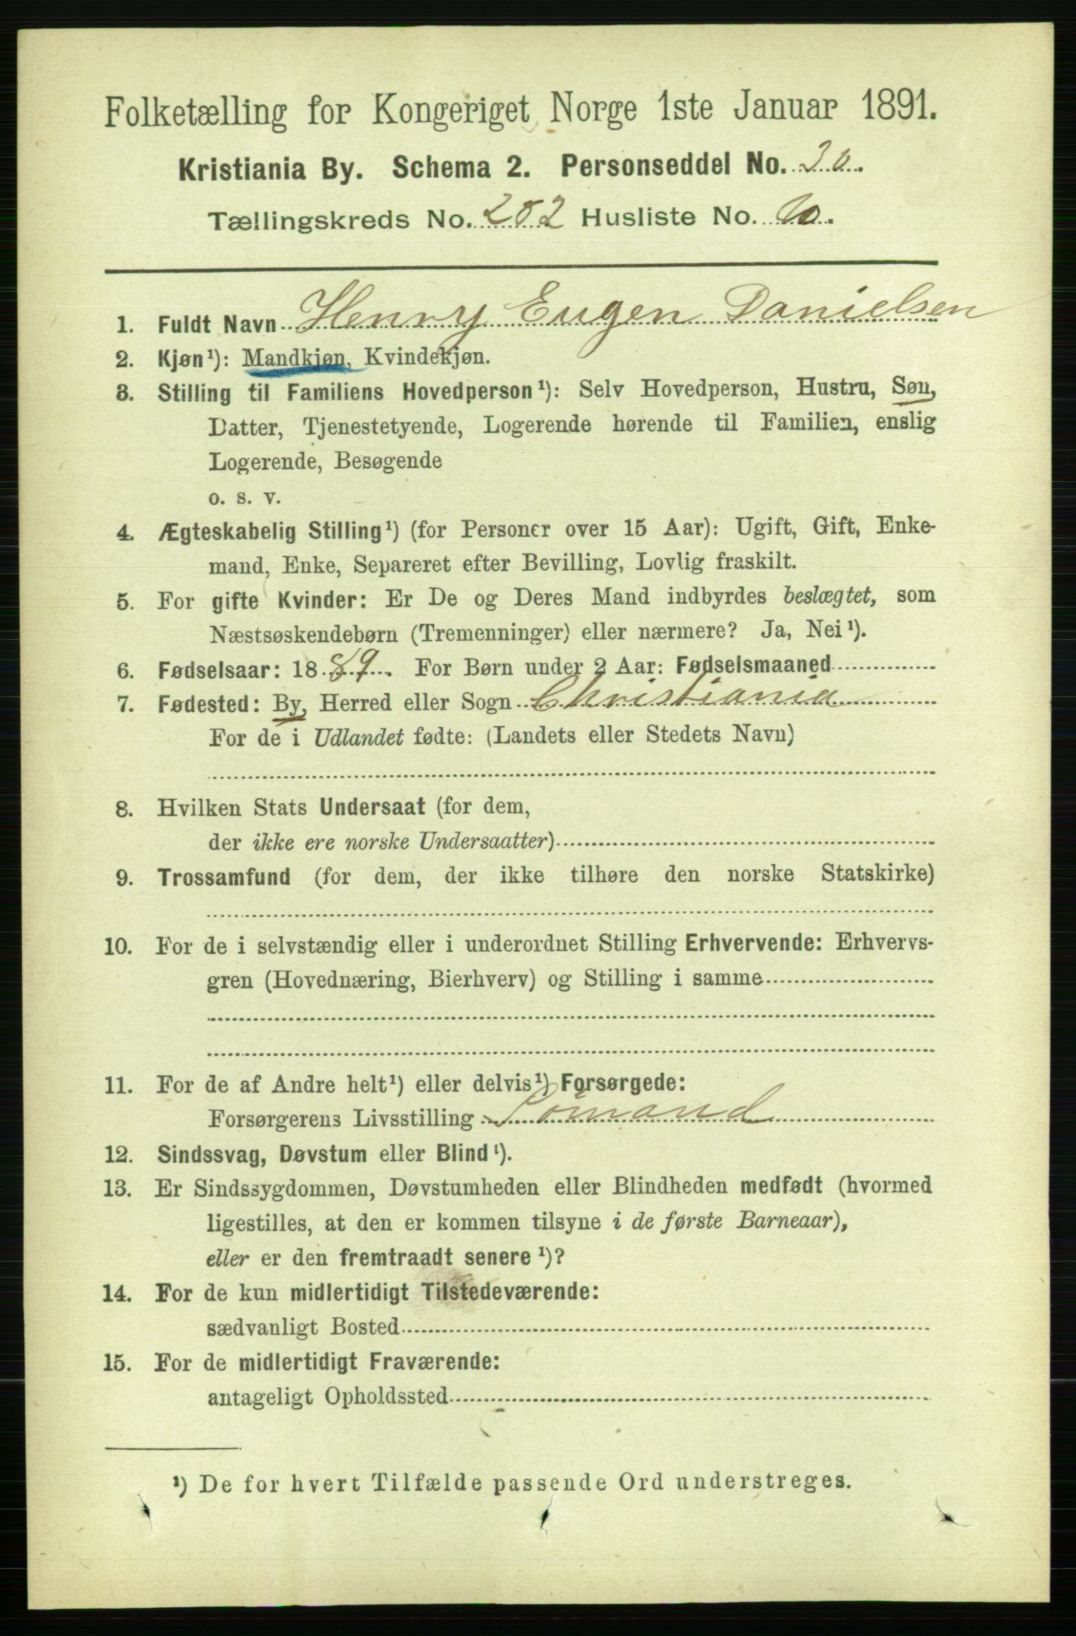 Folketælling for Kongeriget Norge 1ste Januar 1891.
Kristiania By. Schema 2. Personseddel No. 30.
Tællingskreds No. 202 Husliste No.
1. Fuldt Navn Henry Eugen Danielsen
2. Kjøn¹): Mandkjøn, Kvindekjøn.
3. Stilling til Familiens Hovedperson¹): Selv Hovedperson, Hustru, Søn,
Datter, Tjenestetyende, Logerende hørende til Familien, enslig
Logerende, Besøgende
o. s. v.
4. Ægteskabelig Stilling¹) (for Personer over 15 Aar): Ugift, Gift, Enke-
mand, Enke, Separeret efter Bevilling, Lovlig fraskilt.
5. For gifte Kvinder: Er De og Deres Mand indbyrdes beslægtet, som
Næstsøskendebørn (Tremenninger) eller nærmere? Ja, Nei¹).
6. Fødselsaar: 1889. For Børn under 2 Aar: Fødselsmaaned
7. Fødested: By, Herred eller Sogn Christiania
For de i Udlandet fødte: (Landets eller Stedets Navn)
8. Hvilken Stats Undersaat (for dem,
der ikke ere norske Undersaatter)
9. Trossamfund (for dem, der ikke tilhøre den norske Statskirke)
10. For de i selvstændig eller i underordnet Stilling Erhvervende: Erhvervs-
gren (Hovednæring, Bierhverv) og Stilling i samme
11. For de af Andre helt¹) eller delvis¹) Forsørgede:
Forsørgerens Livsstilling Sömand
12. Sindssvag, Døvstum eller Blind¹).
13. Er Sindssygdommen, Døvstumheden eller Blindheden medfødt (hvormed
ligestilles, at den er kommen tilsyne i de første Barneaar),
eller er den fremtraadt senere¹)?
14. For de kun midlertidigt Tilstedeværende:
sædvanligt Bosted
15. For de midlertidigt Fraværende:
antageligt Opholdssted
¹) De for hvert Tilfælde passende Ord understreges.